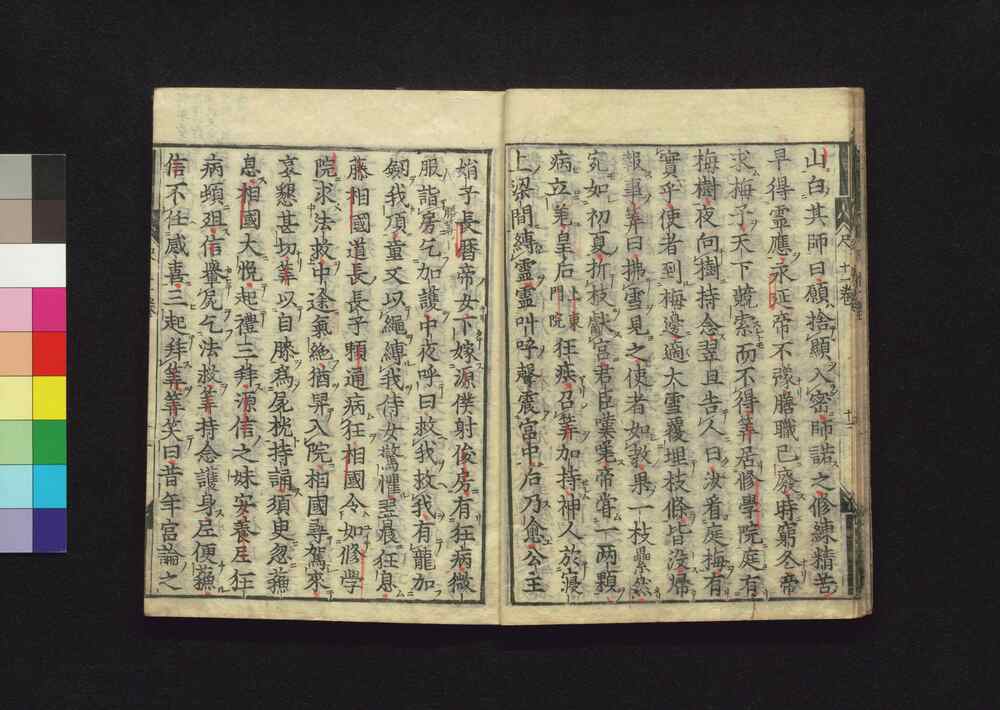 山白其師曰願捨顯入密師諾之修練精苦
早得靈應永延帝不豫膳職已廢時窮冬帝
求梅子天下競索而不得筭居修學院庭有
梅樹夜向樹持念翌旦告人曰汝看庭梅有
實乎使者到梅邊適大雪覆埋枝條皆没歸
報事筭曰拂雪見之使者如教果一枝纍然
宛如初夏折枝献宮君臣驚竒帝甞一两顆
病立差皇后上東門院狂疾召筭加持神人於寢
上梁間縛靈靈叫呼聲震宮中后乃愈公主
娟子長暦帝女下嫁源僕射俊房有狂病微
服詣房乞加護中夜呼曰救我救我有龍加
翎我頂童又以繩縛我侍女驚懼翌晨狂息
藤相國道長長子頼通病狂相國令如修學
院求法救中途氣絶猶舁入院相國尋駕來
哀懇甚切筭以自膝為屍枕持誦須臾忽蘇
息相國大悅起禮三拜源信之妹安養尼狂
病頓殂信轝屍乞法救筭持念護身尼便蘇
信不任感喜三起拜筭筭笑曰昔年宮論之